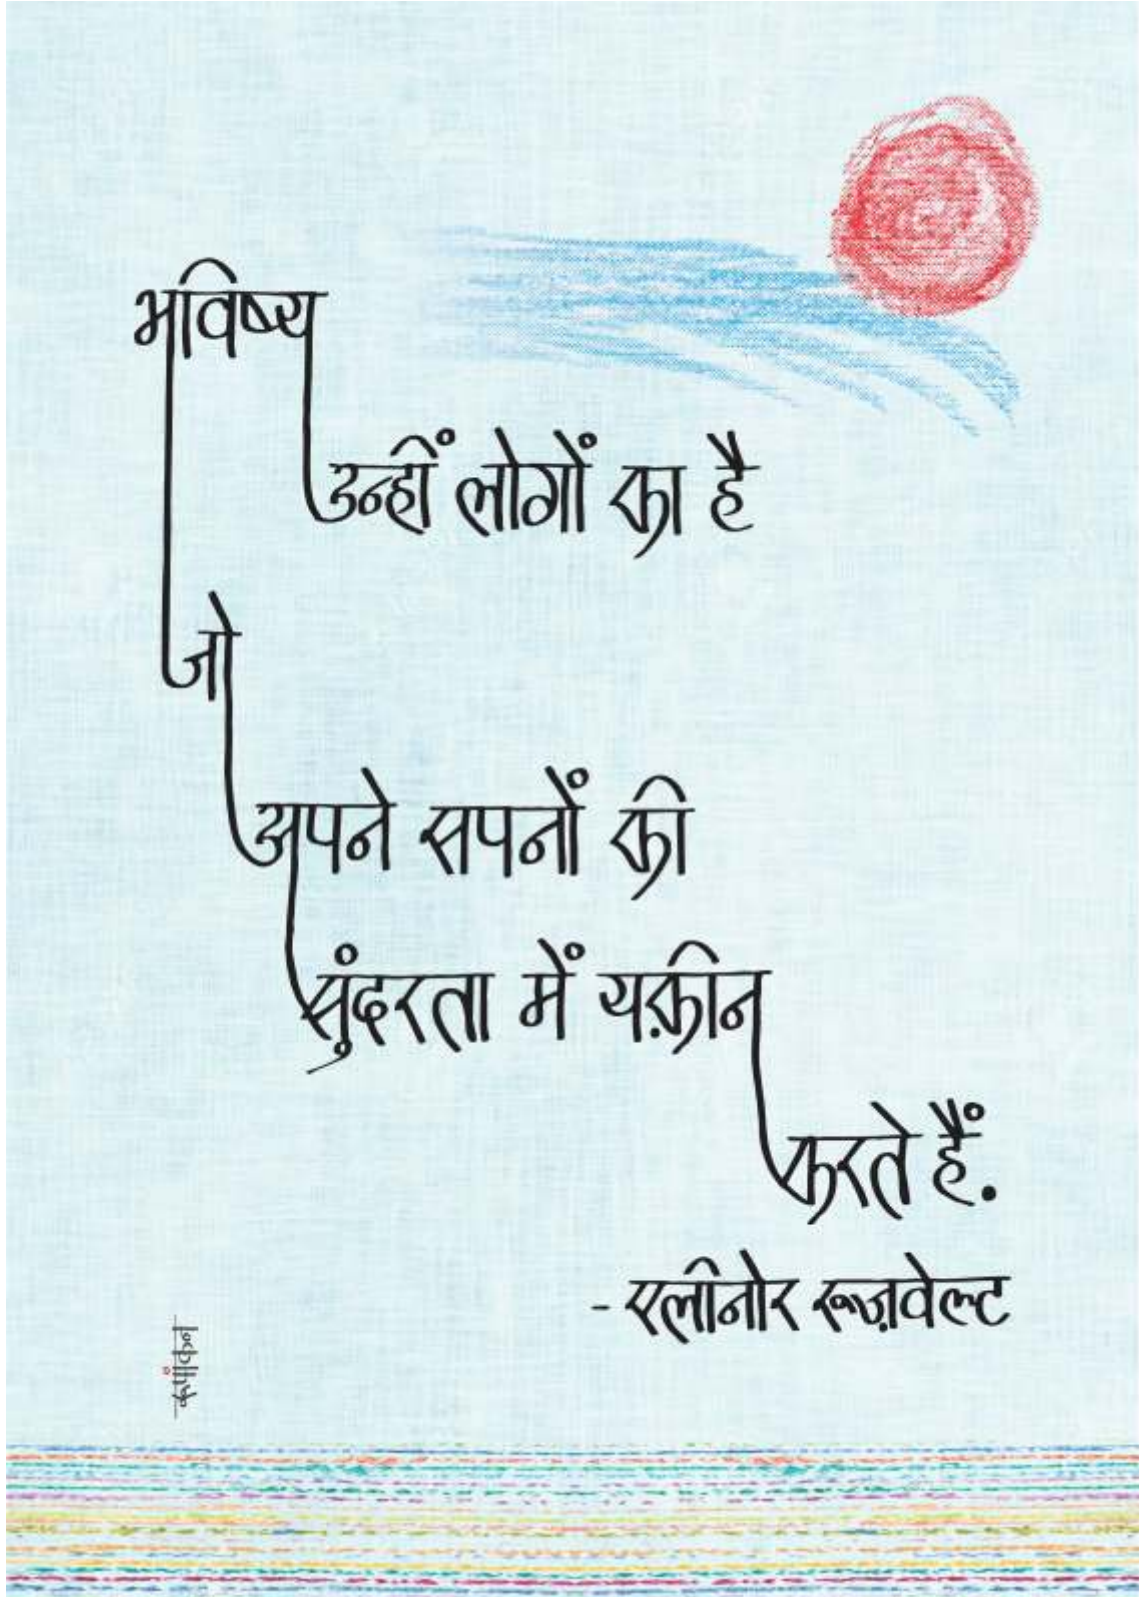 भविष्य
उन्हीं लोगों का है
जो
अपने सपनों की
सुंदरता में यक़ीन
करते हैं.
- एलीनोर रूज़वेल्ट